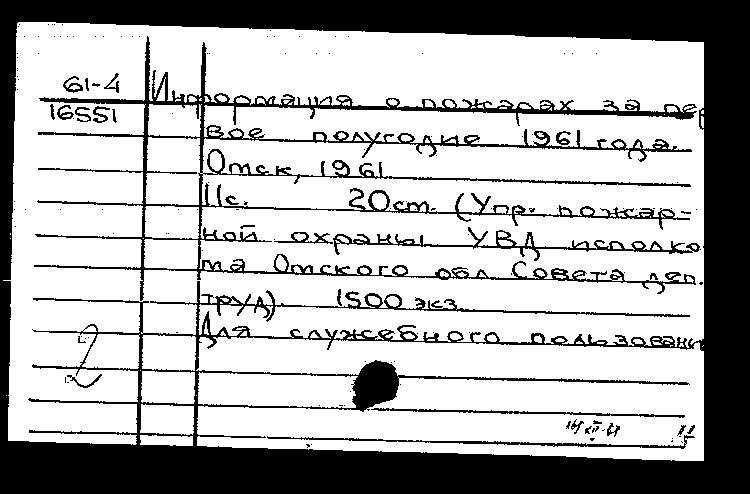 61-4
16551
Информация о пожарах за пер
вое полугодие 1961 года.
Омск, 1961
11с. 20см. (Упр. пожар-
ной охраны УВД исполко
ма Омского обл Совета деп.
труд). 1500 экз.
Для служебного пользовани
2